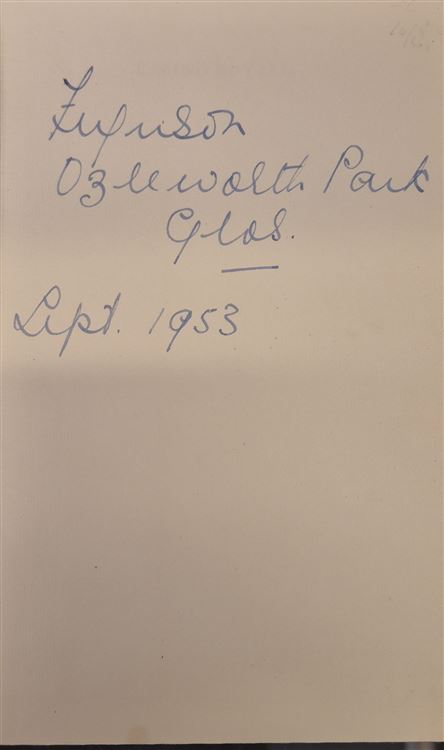 Ferguson
Ozleworth Park
Glos.
Sept. 1953